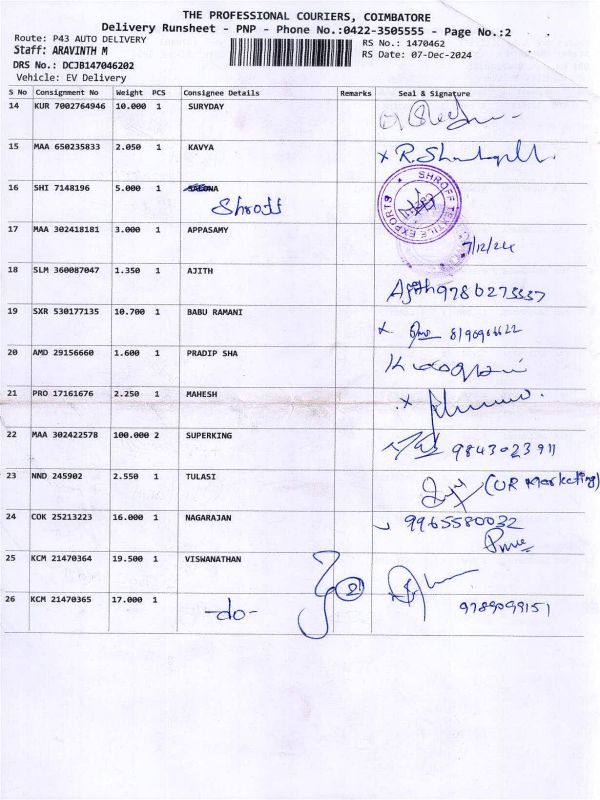 THE PROFESSIONAL COURIERS, COIMBATORE
Delivery Runsheet - PNP - Phone No.:0422-3505555 - Page No.:2
Route: P43 AUTO DELIVERY
RS No.: 1470462
Staff: ARAVINTH M
RS Date: 07-Dec-2024
DRS No.: DCJB147046202
Vehicle: EV Delivery
S No Consignment No Weight PCS Consignee Details Remarks Seal & Signature
14 KUR 7002764946 10.000 1 SURYDAY
15 MAA 650235833 2.050 1 KAVYA
16 SHI 7148196 5.000 1
Shroff
SHROFF TEXTILE EXPORTS
17 MAA 302418181 3.000 1 APPASAMY
7/12/24
18 SLM 360087047 1.350 1 AJITH
19 SXR 530177135 10.700 1 BABU RAMANI
20 AMD 29156660 1.600 1 PRADIP SHA
21 PRO 17161676 2.250 1 MAHESH
22 MAA 302422578 100.000 2 SUPERKING
9843023911
23 NND 245902 2.550 1 TULASI
(UR Marketing)
24 COK 25213223 16.000 1 NAGARAJAN
9965580032
25 KCM 21470364 19.500 1 VISWANATHAN
2
26 KCM 21470365 17.000 1
-do-
9789099151